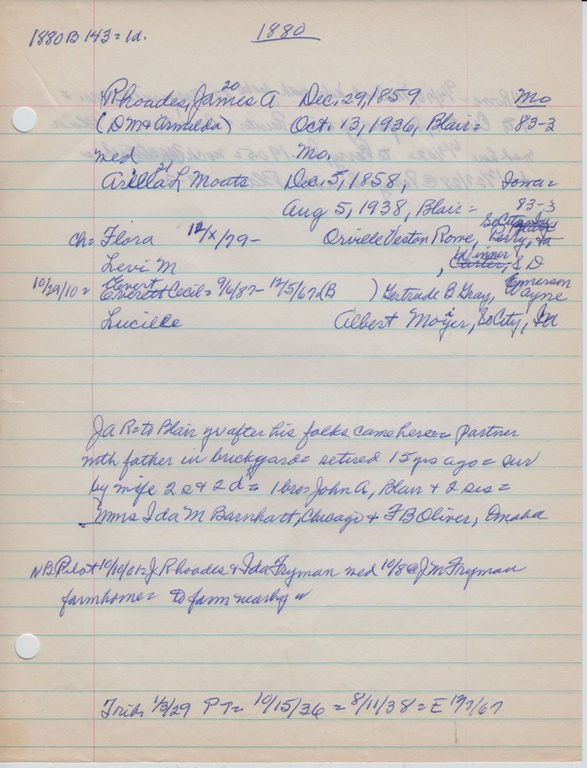 1880 B 143 = 1d.
1880
Rhoades, James A 20 Dec. 29, 1859 Mo
(DM & Armilda) Oct. 13, 1936, Blair = 83-3
med Mo.
Arilla L Moats 21 Dec. 5, 1858, Iowa =
Aug 5, 1938, Blair = 83-3
Ch = Flora 12/x/79 - Orville Veston Rome, SoCity, Ia
Perry, Ia
Levi M , Winner, SD
10/29/10 = Clevert Everett Cecil = 9/6/87 - 12/5/67 LB ) Gertrude B Gray, Emerson
Wayne
Lucille Albert Moyer, SoCity, Ia
JaR = to Blair yr after his folks came here = partner
with father in brickyard = retired 15 yrs ago = sur
by wife 2 s & 2 d = 1 bro = John A, Blair & 2 sis =
Mms Ida M Barnhart, Chicago & F B Oliver, Omaha
NB Pilot 10/10/01 = J Rhoades & Ida Fryman med 10/8 @ J M Fryman
farmhome = to farm nearby
Trib. 1/3/29 PT = 10/15/36 = 8/11/38 = E 12/7/67